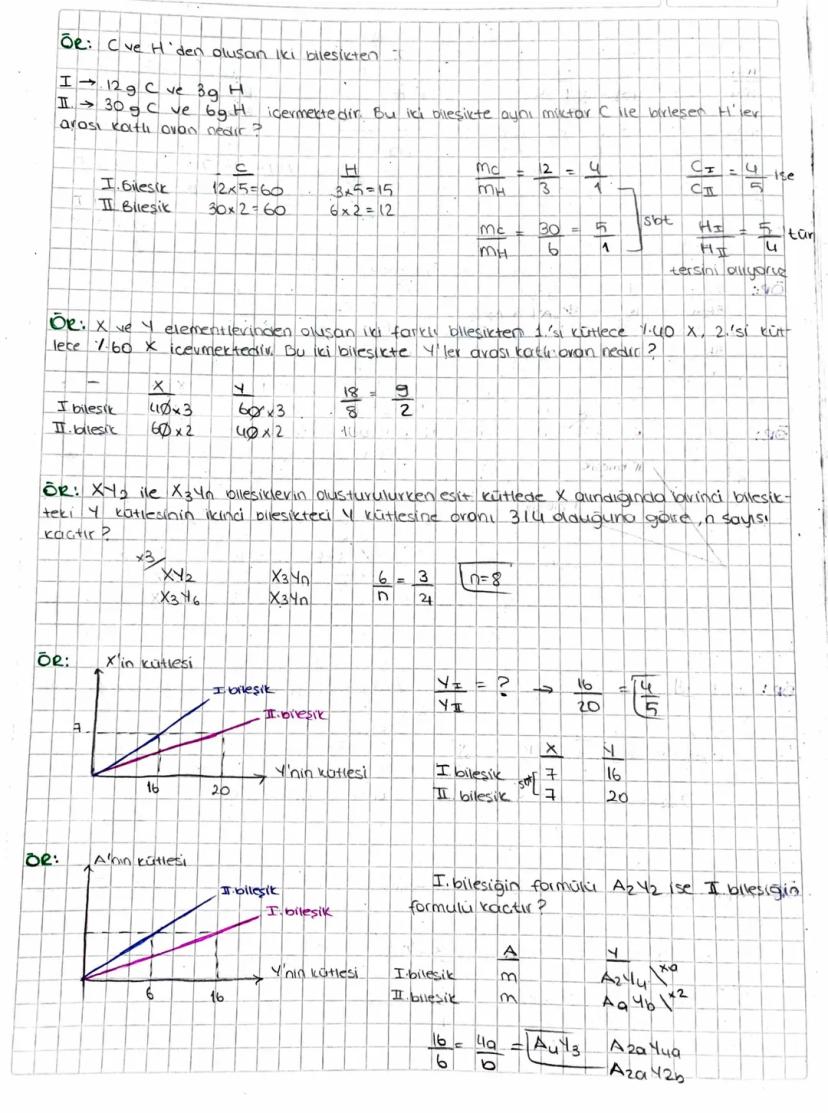 ÖR: C ve H'den oluşan iki bileşikten :
I → 12g C ve 3g H
II → 30g C ve 6g H içermektedir. Bu iki bileşikte aynı miktar C ile birleşen H'ler
arası katlı oran nedir?
C H
I. Bileşik 12x5=60 3x5=15
II Bileşik 30x2=60 6x2=12
mc/mH = 12/3 = 4/1
mc/mH = 30/6 = 5/1
sbt
CI/CII = 4/5 ise
HI/HII = 5/4 tür
tersini alıyoruz
ÖR: X ve Y elementlerinden oluşan iki farklı bileşikten 1.'si kütlece %40 X, 2.'si küt-
lece %60 X içermektedir. Bu iki bileşikte Y'ler arası katlı oran nedir?
X Y
I bileşik 40x3 60x3
II. bileşik 60x2 40x2
18/8 = 9/2
ÖR: XY2 ile X3Yn bileşiklerin oluşturulurken eşit kütlede X alındığında birinci bileşik-
teki Y kütlesinin ikinci bileşikteki Y kütlesine oranı 3/4 olduğuna göre, n sayısı
kaçtır?
x3/
XY2 X3Yn
X3Y6 X3Yn
6/n = 3/4 n=8
ÖR: X'in kütlesi
I. bileşik
II. bileşik
7
16 20
Y'nin kütlesi
YI/YII = ? → 16/20 = 4/5
X Y
I bileşik 7 16
sbt
II. bileşik 7 20
ÖR: A'nın kütlesi
II. bileşik
I. bileşik
6 16
Y'nin kütlesi
I. bileşiğin formülü A2Y2 ise II bileşiğin
formülü kaçtır?
A Y
I. bileşik m A2Y4 \xa
II bileşik m AaYb \x2
16/6 = 4a/b = A4Y3
A2aY4a
A2aY2b